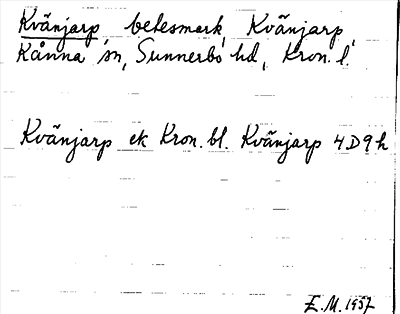 Kvänjarp, betesmark, Kvänjarp,
Kånna sn, Sunnerbo hd, Kron. l.
Kvänjarp ek Kron. bl. Kvänjarp 4D9h
E.M. 1957